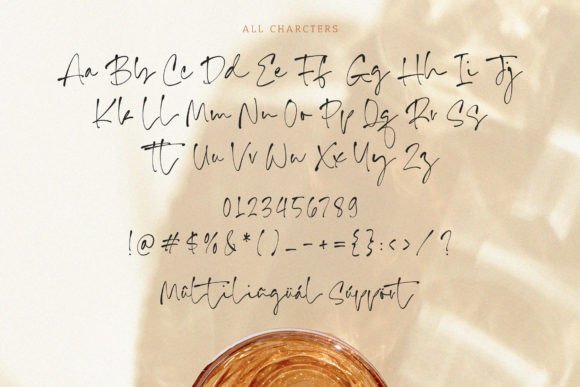 ALL CHARCTERS
Aa Bb Cc Dd Ee Ff Gg Hh Ii Jj
Kk Ll Mm Nn Oo Pp Qq Rr Ss
Tt Uu Vv Ww Xx Yy Zz
0123456789
!@#$%&*()_-+={}:<>/?
Mûltilingüál Súppõrt